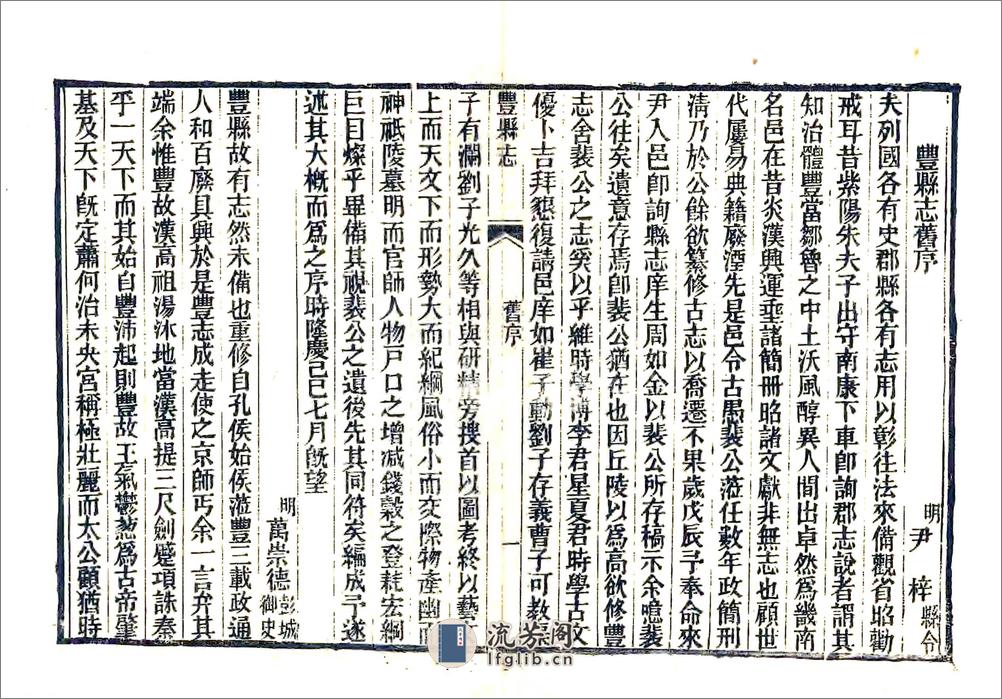 豐縣志舊序
明尹梓縣令
夫列國各有史郡縣各有志用以彰往法來備觀省昭勸
戒耳昔紫陽朱夫子出守南康下車卽詢郡志說者謂其
知治體豐當鄒魯之中土沃風醇異人間出卓然爲畿南
名邑在昔炎漢興運垂諸簡冊昭諸文獻非無志也顧世
代屢易典籍廢湮先是邑令古愚裴公蒞任數年政簡刑
淸乃於公餘欲纂修古志以喬遷不果歲戊辰予奉命來
尹入邑卽詢縣志庠生周如金以裴公所存稿示余噫裴
公往矣遺意存焉卽裴公猶在也因丘陵以爲高欲修豐
志舍裴公之志奚以乎維時學博李君星夏君時學古文
優卜吉拜懇復請邑庠如崔子動劉子存義曹子可教
豐縣志
舊序
一
子有瀾劉子光久等相與研精旁搜首以圖考終以藝
上而天文下而形勢大而紀綱風俗小而交際物產幽而
神祇陵墓明而官師人物戸口之增減錢穀之登耗宏綱
巨目燦乎畢備其視裴公之遺後先其同符矣編成予遂
述其大槪而爲之序時隆慶己巳七月旣望
明萬崇德彭城御史
豐縣故有志然未備也重修自孔侯始侯蒞豐三載政通
人和百廢具興於是豐志成走使之京師丐余一言弁其
端余惟豐故漢高祖湯沐地當漢高提三尺劍蹙項誅秦
乎一天下而其始自豐沛起則豐故王氣鬱葱爲古帝肇
基及天下旣定蕭何治未央宮稱極壯麗而太公顧猶時
流芳阁
lfglib.cn